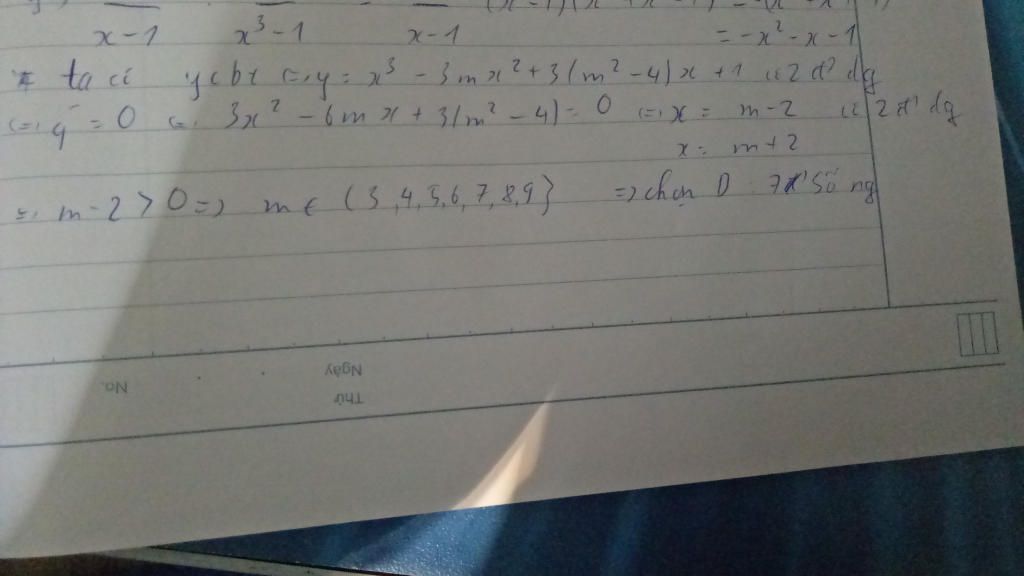 x-1 x³-1 x-1 = -x²-x-1
ta có ycbt <=> y = x³ - 3mx² + 3(m²-4)x + 1 có 2 đ' dg
<=> y' = 0 <=> 3x² - 6mx + 3(m²-4) = 0 <=> x = m-2 có 2 đ' dg
x = m+2
<=> m-2 > 0 => m ∈ {3,4,5,6,7,8,9} => chọn D : 7 số ng
Thứ
Ngày
No.